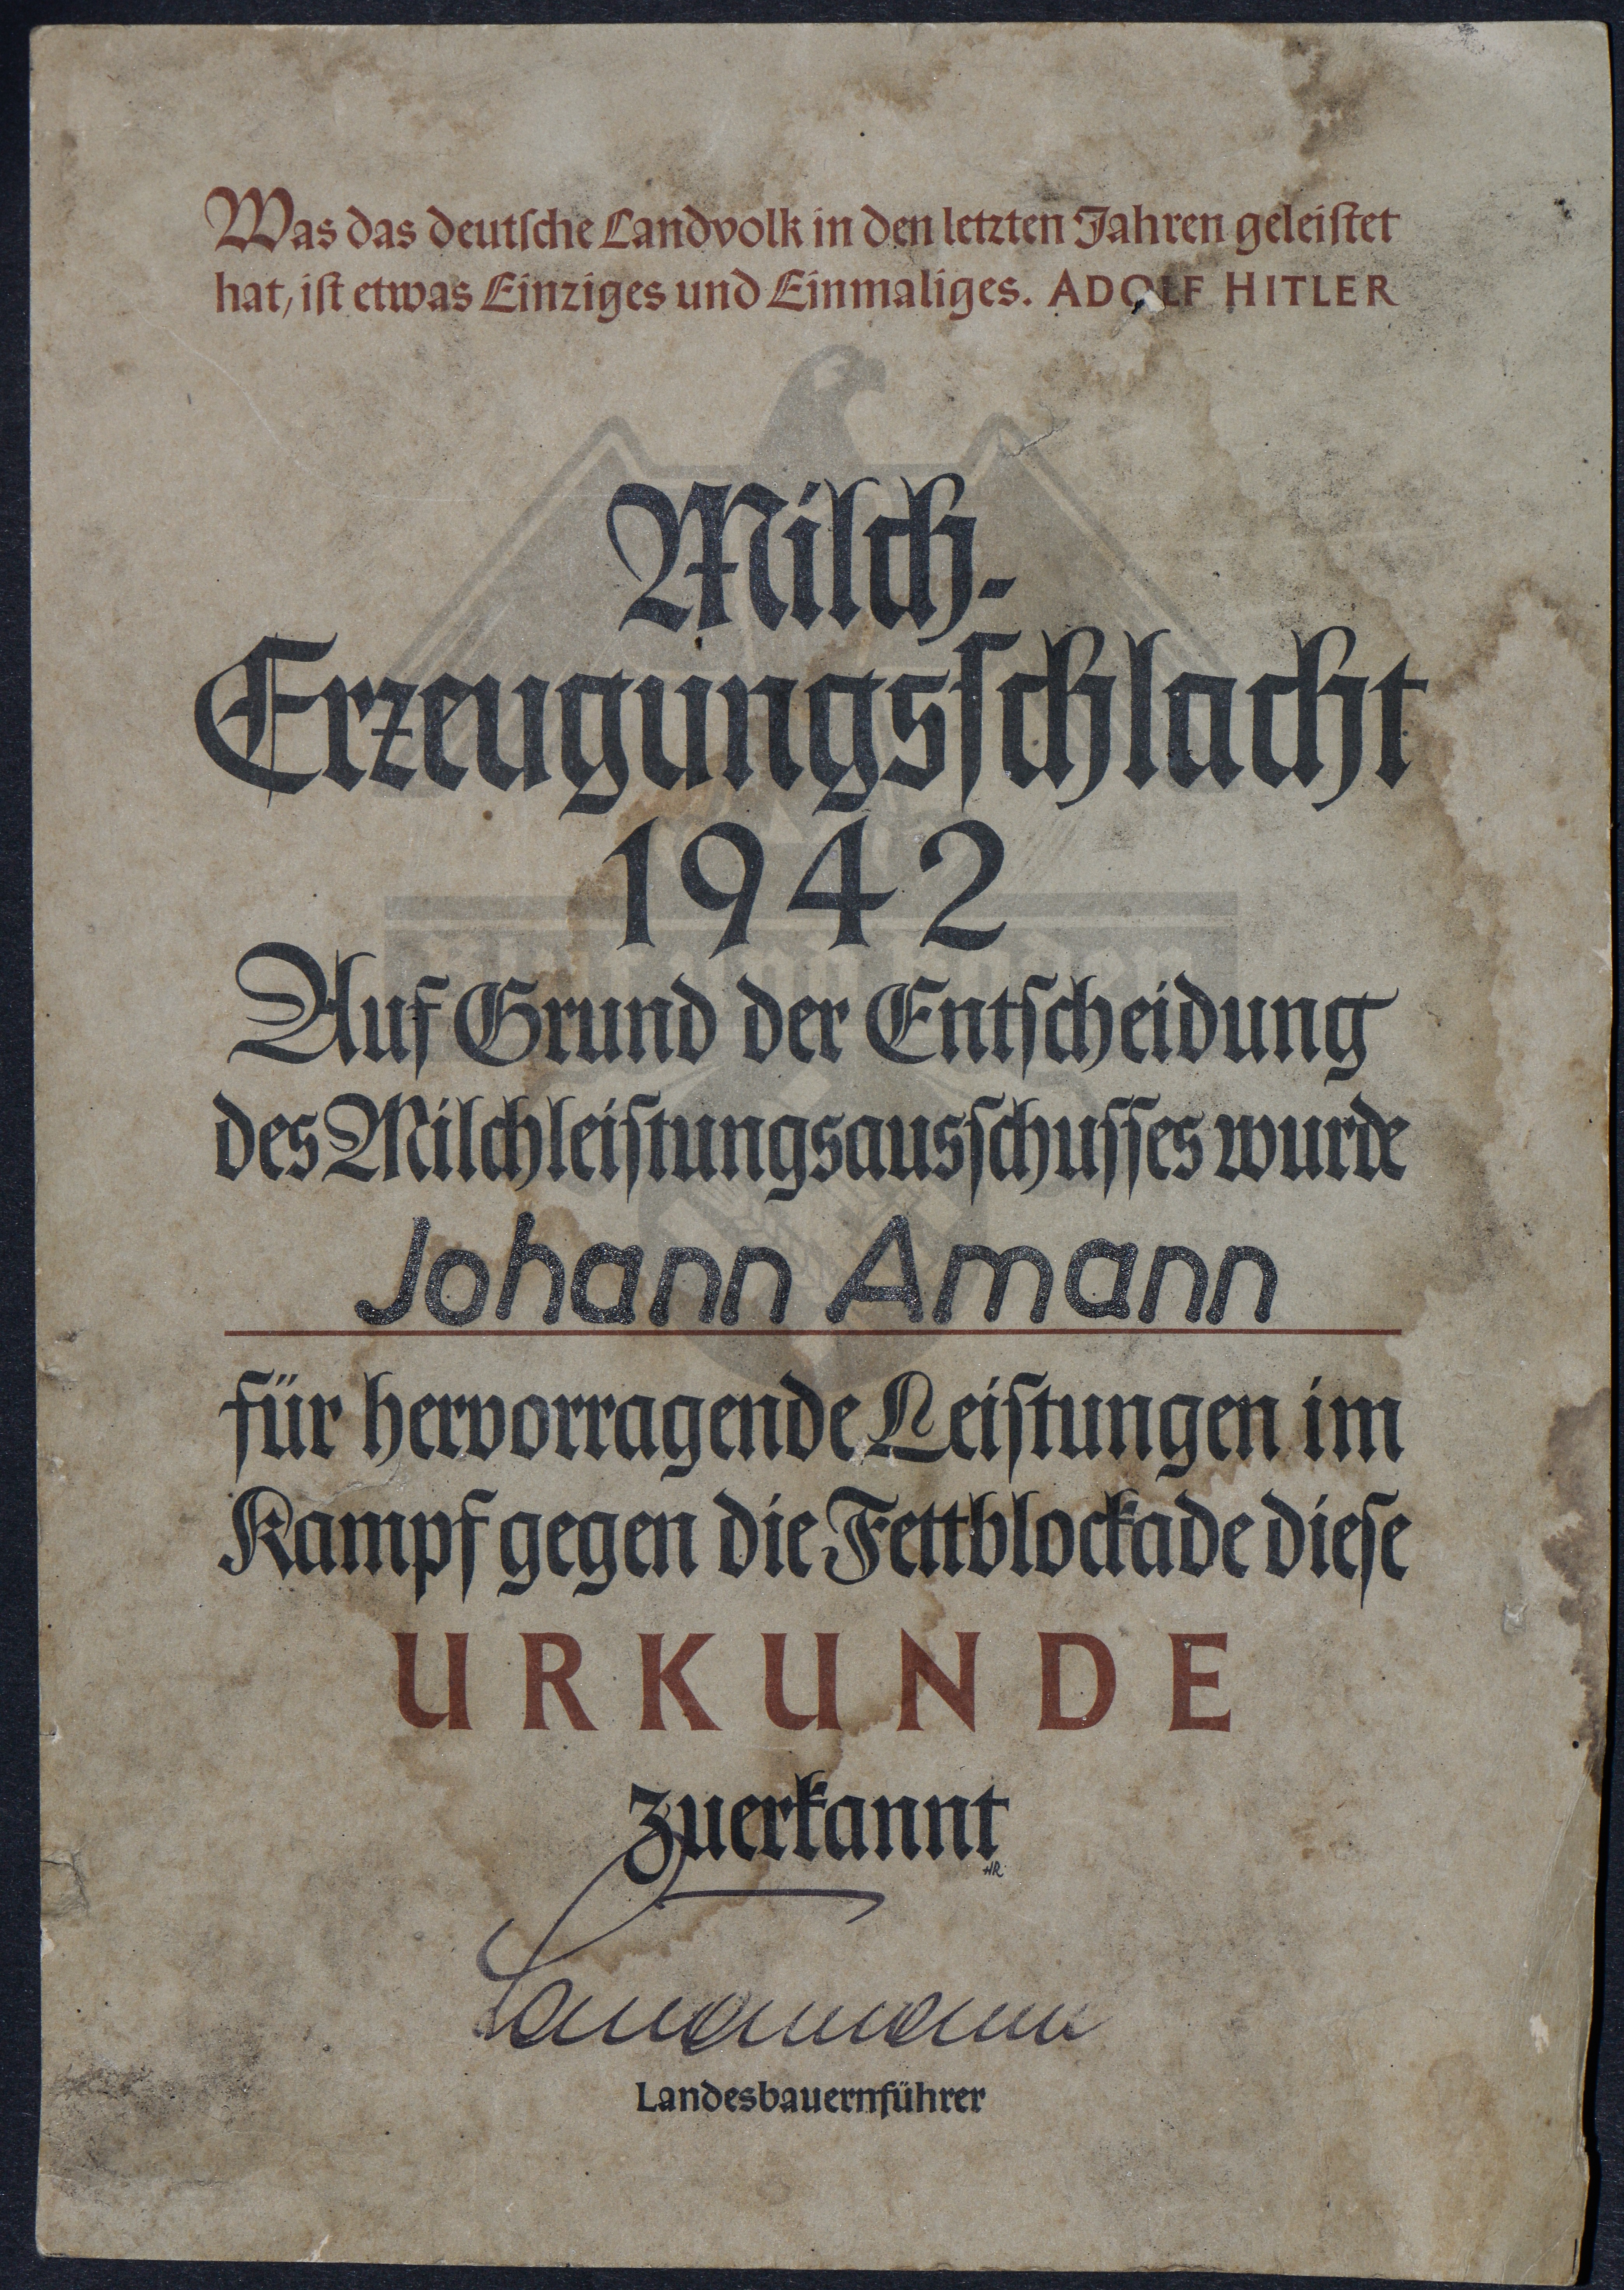 Was das deutſche Landvolk in den letzten Jahren geleiſtet
hat, iſt etwas Einziges und Einmaliges. ADOLF HITLER
Milch-
Erzeugungsſchlacht
1942
Auf Grund der Entſcheidung
des Milchleiſtungsausſchuſſes wurde
Johann Amann
für hervorragende Leiſtungen im
Kampf gegen die Fettblockade dieſe
URKUNDE
zuerkannt
HR
Landesbauernführer